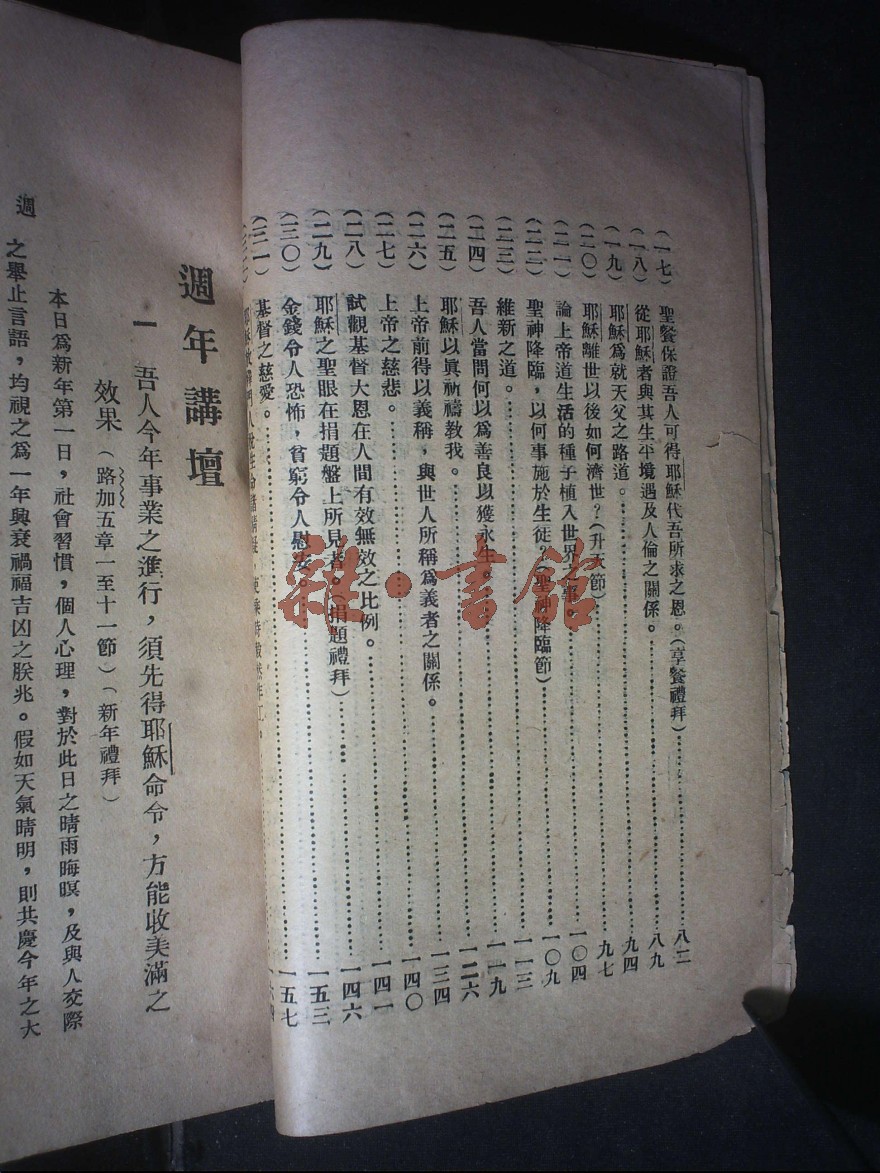 (一七) 聖餐保證吾人可得耶穌代吾所求之恩。(享餐禮拜)……八二
(一八) 從耶穌者與其生平境遇及人倫之關係。……八九
(一九) 耶穌為就天父之路道。……九四
(二〇) 耶穌離世以後如何濟世?(升天節)……九七
(二一) 論上帝道生活的種子植入世界之事。……一〇四
(二二) 聖神降臨,以何事施於生徒?(聖神降臨節)……一〇九
(二三) 維新之道。……一一三
(二四) 吾人當問何以為善良以獲永生。……一一九
(二五) 耶穌以真祈禱教我。……一二六
(二六) 上帝前得以義稱,與世人所稱為義者之關係。……一三四
(二七) 上帝之慈悲。……一四〇
(二八) 試觀基督大恩在人間有效無效之比例。……一四一
(二九) 耶穌之聖眼在捐題盤上所見者。(捐題禮拜)……一四六
(三〇) 金錢令人恐怖,貧窮令人慰安。……一五三
(三一) 基督之慈愛。……一五七
週年講壇
一 吾人今年事業之進行,須先得耶穌命令,方能收美滿之
效果(路加五章一至十一節)(新年禮拜)
本日為新年第一日,社會習慣,個人心理,對於此日之晴雨晦暝,及與人交際
之舉止言語,均視之為一年興衰禍福吉凶之朕兆。假如天氣晴明,則共慶今年之大
週
雜·書館